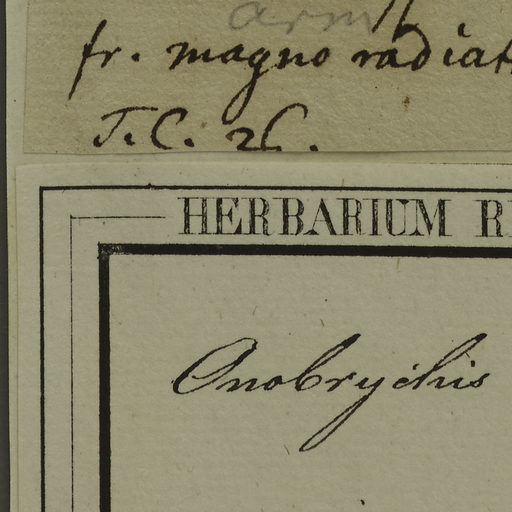 arm
fr. magno radiat
T.C. 26.
HERBARIUM R
Onobrychis